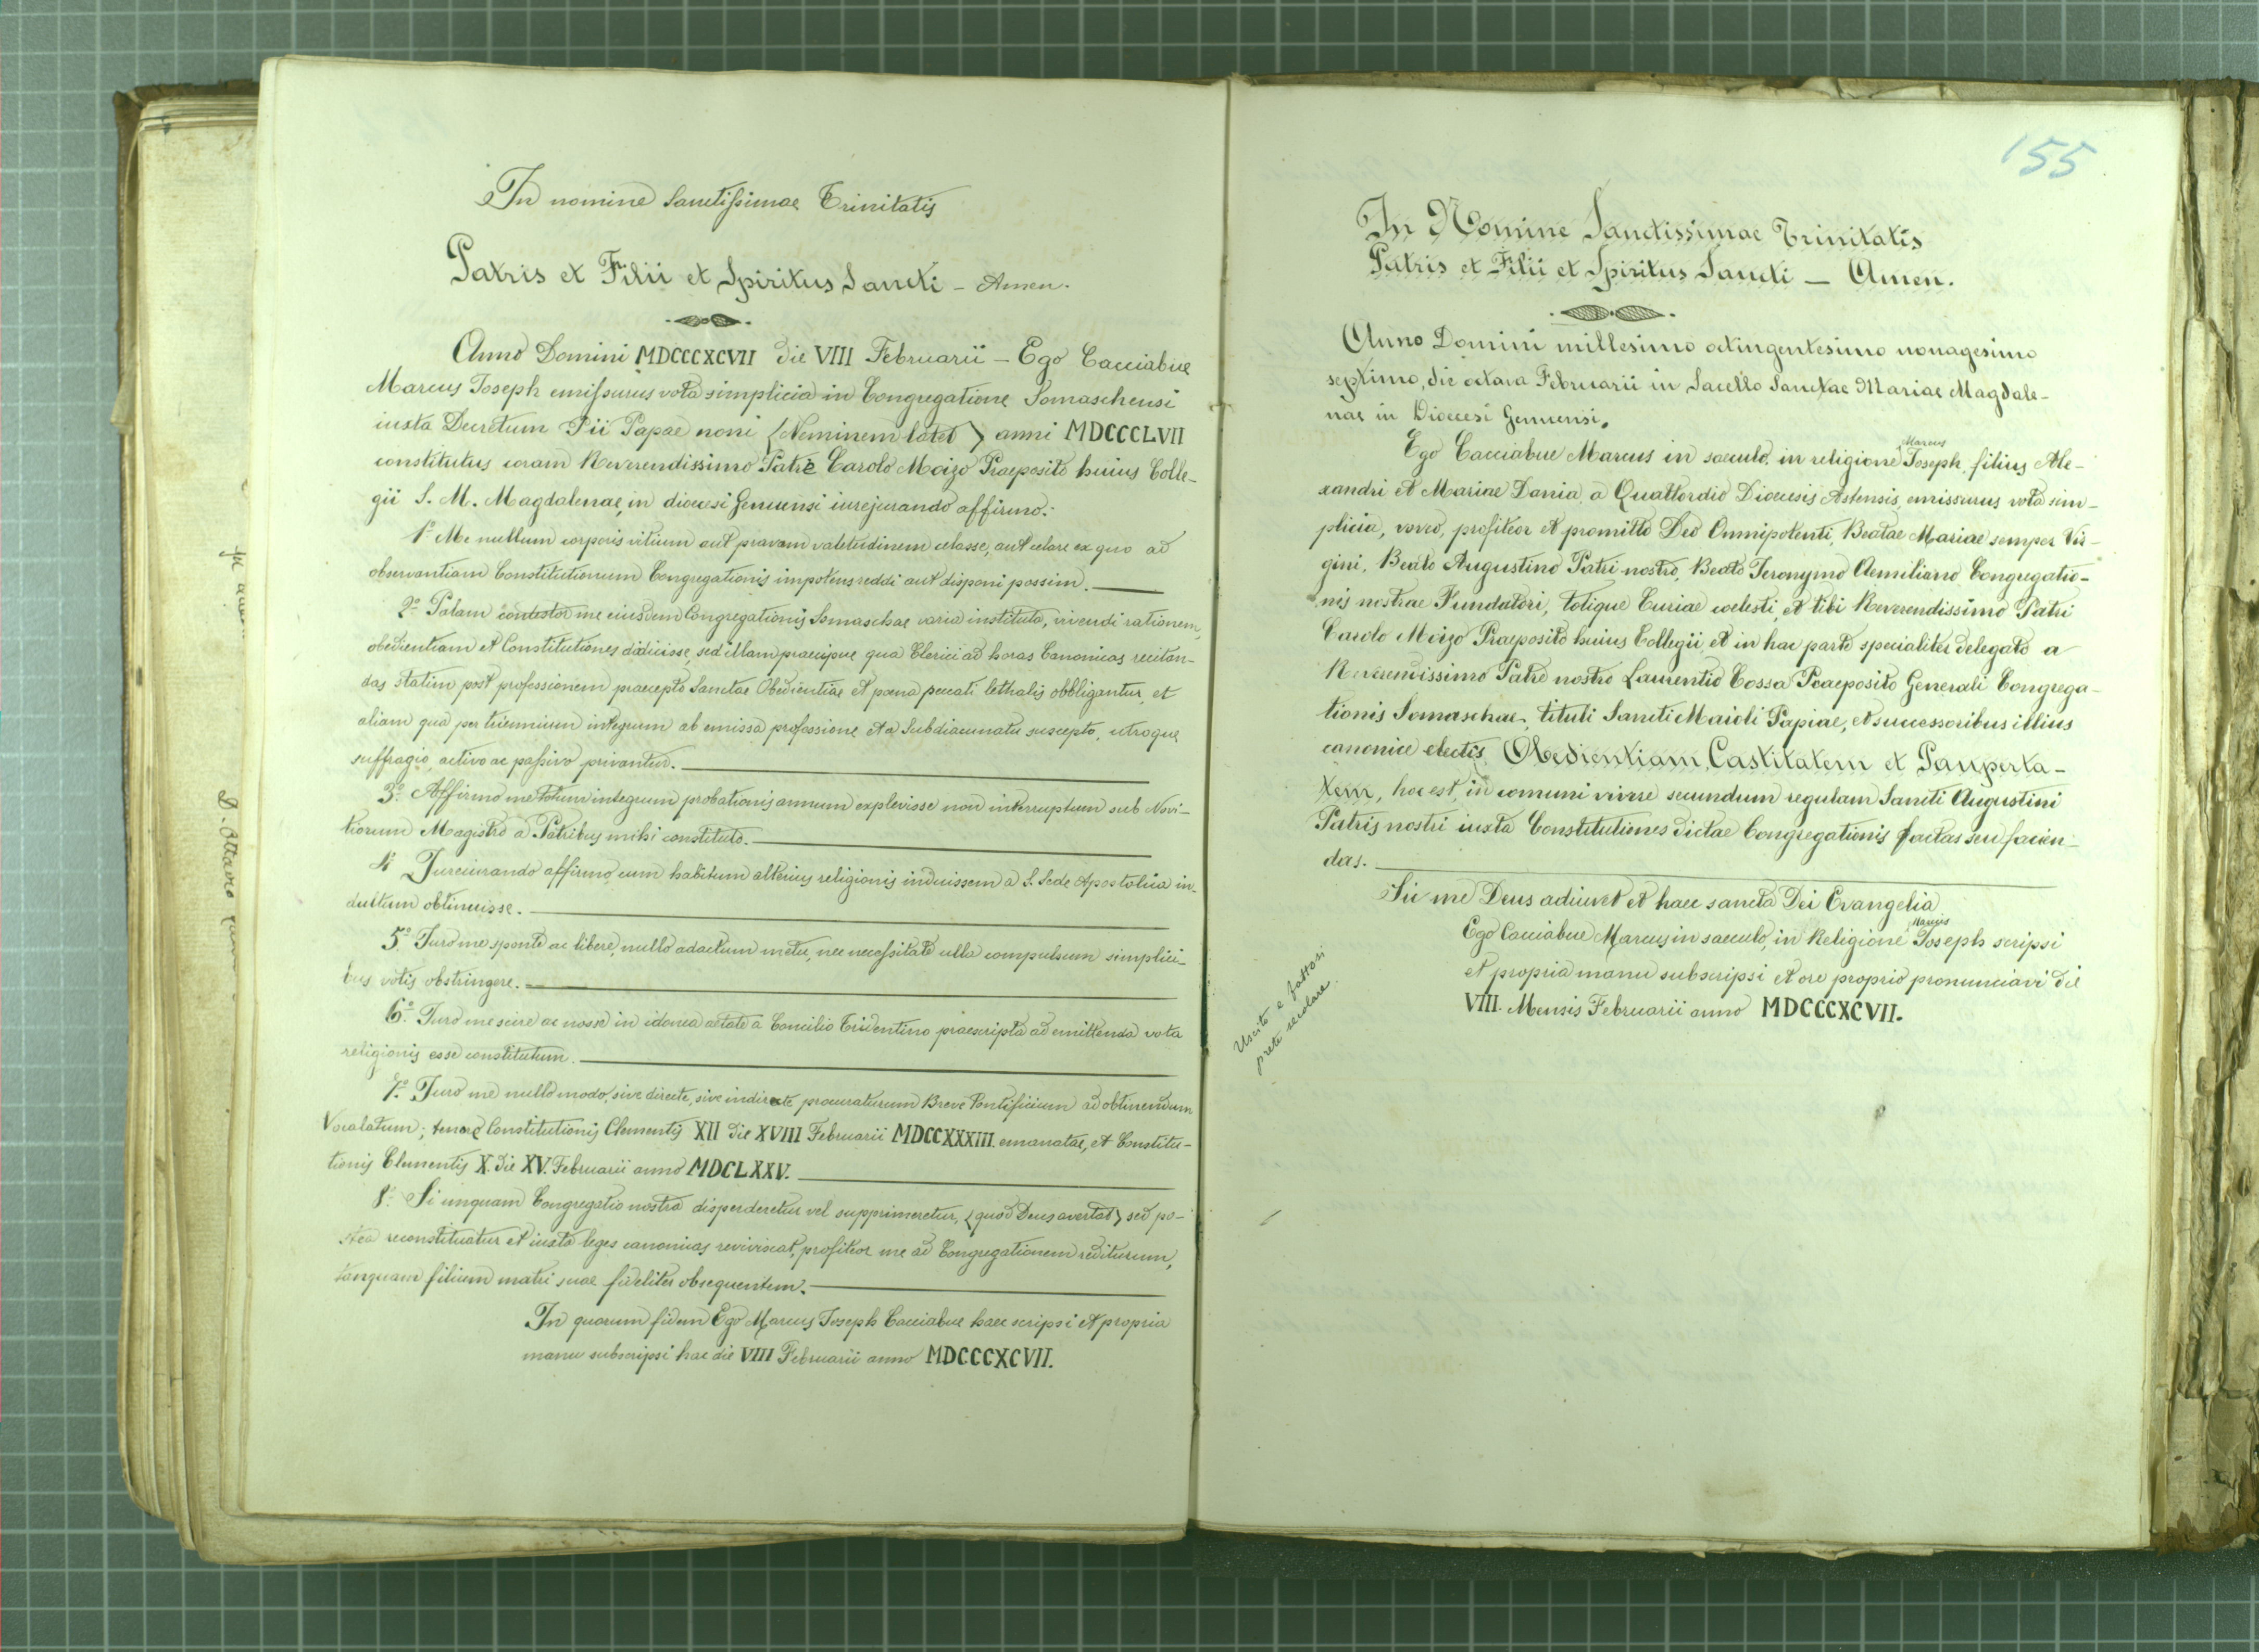 In nomine Sanctissimae Trinitatis
Patris et Filii et Spiritus Sancti - Amen.
Anno Domini MDCCCXCVII die VIII Februarii - Ego Cacciabue
Marcus Joseph emissurus vota simplicia in Congregatione Somaschensi
iusta Decretum Pii Papae noni (Neminem latet) anni MDCCCLVII
constitutus coram Reverendissimo Patre Carolo Moizo Praeposito huius Colle-
gii S. M. Magdalenae, in diocesi Genuensi iurejurando affirmo:
1º Me nullum corporis vitium aut pravam valetudinem celasse, aut celare ex quo ad
observantiam Constitutionum Congregationis impotens reddi aut disponi possim.
2º Palam contestor me eiusdem Congregationis Somaschae varia instituta, vivendi rationem,
obedientiam et Constitutiones didicisse, sed illam praecipue qua Clerici ad horas Canonicas recitan-
das statim post professionem praecepto Sanctae Obedientiae et poena peccati lethalis obbligantur, et
aliam qua per triennium integrum ab emissa professione et a Subdiaconatu suscepto, utroque
suffragio, activo ac passivo privantur.
3º Affirmo me totum integrum probationis annum explevisse non interruptum sub Novi-
tiorum Magistro a Patribus mihi constituto.
4º Jureiurando affirmo, cum habitum alterius religionis induissem a S. Sede Apostolica in-
dultum obtinuisse.
5º Juro me sponte ac libere, nullo adactum metu, nec necessitate ulla compulsum simplici-
bus votis obstringere.
6º Juro me scire ac nosse in idonea aetate a Concilio Tridentino praescripta ad emittenda vota
religionis esse constitutum.
7º Juro me nullo modo, sive directe, sive indirecte procuraturum Breve Pontificium ad obtinendum
Vocalatum; tenore Constitutionis Clementis XII die XVIII Februarii MDCCXXXIII. emanatae, et Constitu-
tionis Clementis X. die XV. Februarii anno MDCLXXV.
8º Si unquam Congregatio nostra disperderetur vel supprimeretur, (quod Deus avertat) sed po-
stea reconstituatur et iusta leges canonicas reviviscat, profiteor me ad Congregationem rediturum,
tanquam filium matri suae fideliter obsequentem.
In quorum fidem Ego Marcus Joseph Cacciabue haec scripsi et propria
manu subscripsi hac die VIII Februarii anno MDCCCXCVII.
155
In Nomine Sanctissimae Trinitatis
Patris et Filii et Spiritus Sancti - Amen.
Anno Domini millesimo octingentesimo nonagesimo
septimo, die octava Februarii in Sacello Sanctae Mariae Magdale-
nae in Dioecesi Genuensi.
Marcus
Ego Cacciabue Marcus in saeculo, in religione Joseph, filius Ale-
xandri et Mariae Dania, a Quattordio Dioecesis Astensis, emissurus vota sim-
plicia, voveo, profiteor et promitto Deo Omnipotenti, Beatae Mariae semper Vir-
gini, Beato Augustino Patri nostro, Beato Jeronymo Aemiliano Congregatio-
nis nostrae Fundatori, totique Curiae coelesti, et tibi Reverendissimo Patri
Carolo Moizo Praeposito huius Collegii, et in hac parte specialiter delegato a
Reverendissimo Patre nostro Laurentio Cossa Praeposito Generali Congrega-
tionis Somaschae, tituli Sancti Maioli Papiae, et successoribus illius
canonice electis, Obedientiam, Castitatem et Pauperta-
tem, hoc est, in comuni vivere secundum regulam Sancti Augustini
Patris nostri iuxta Constitutiones dictae Congregationis factas seu facien-
das.
Sic me Deus adiuvet et haec sancta Dei Evangelia
Marcus
Ego Cacciabue Marcus in saeculo, in Religione Joseph scripsi
et propria manu subscripsi et ore proprio pronunciavi die
VIII. Mensis Februarii anno MDCCCXCVII.
Uscito e fattosi
prete secolare.